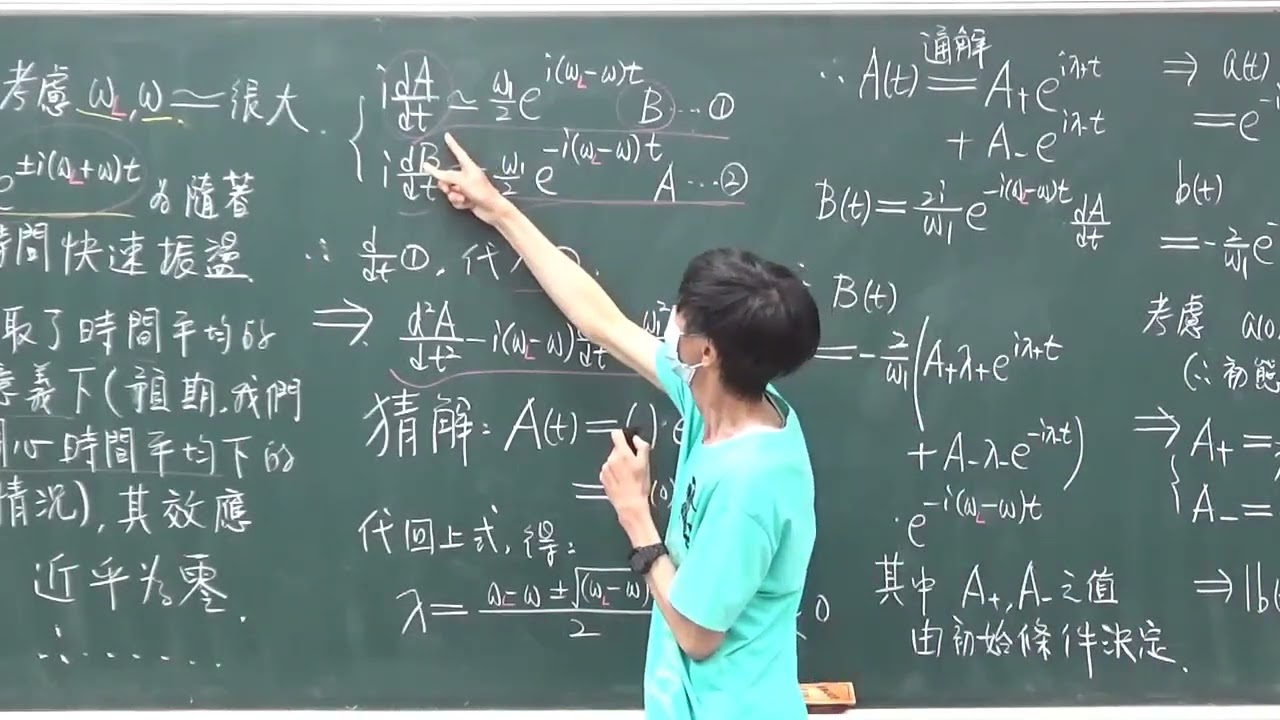 考慮 ω_L, ω ≃ 很大.
e^{±i(ω_L+ω)t} 為隨著
時間快速振盪
取了時間平均的
意義下(預期,我們
關心時間平均下的
情況),其效應
近乎為零.
∴ ........
{ i dA/dt ≃ ω₁/2 e^{i(ω_L-ω)t} B …①
i dB/dt ω₁/2 e^{-i(ω_L-ω)t} A …②
∴ d/dt ①, 代入
⇒ d²A/dt² - i(ω_L-ω) dA/dt ω₁²
猜解: A(t) = ( ) e
= (0)
代回上式,得:
λ = ω_L-ω ± √(ω_L-ω) / 2 0
∴ A(t) 通解= A₊e^{iλ₊t}
+ A₋e^{iλ₋t}
B(t) = 2i/ω₁ e^{-i(ω_L-ω)t} dA/dt
B(t)
= -2/ω₁ (A₊λ₊e^{iλ₊t}
+ A₋λ₋e^{-iλ₋t})
·e^{-i(ω_L-ω)t}
其中 A₊, A₋之值
由初始條件決定.
⇒ a(t)
= e^{-i
b(t)
= -2/ω₁ e^-
考慮 a(0
(∵初態
⇒ { A₊ =
A₋ =
⇒ |b(